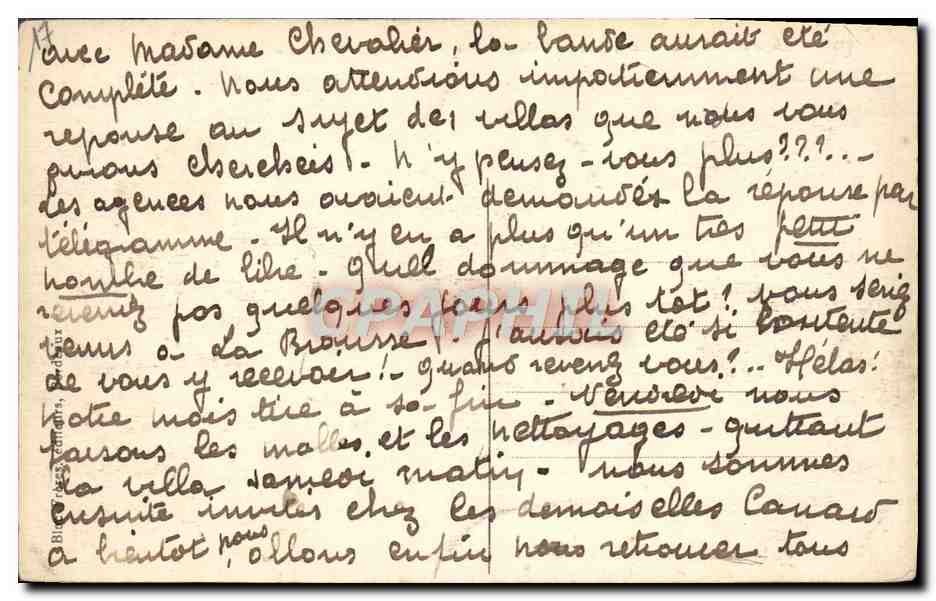 17
avec Madame Chevalier, la bande aurait été
complète. Nous attendions impatiemment une
reponse au sujet des villas que nous vous
avions cherchées. N'y pensez-vous plus???...
Les agences nous avaient demandés la réponse par
télégramme. Il n'y en a plus qu'un tres petit
nombre de libre. Quell dommage que vous ne
revenez pas quelques jours plus tôt! Vous seriez
venus à La Brousse. J'aurais été si contente
de vous y recevoir!. Quand revenez vous?.. Hélas!
notre mois tire à sa fin. Vendredi nous
faisons les malles et les nettoyages - quittant
la villa samedi matin. nous sommes
ensuite invités chez les demoiselles Canard
a bientot nous allons enfin nous retrouver tous
CPAPHIL
Bloc Frères, éditeurs, Bordeaux